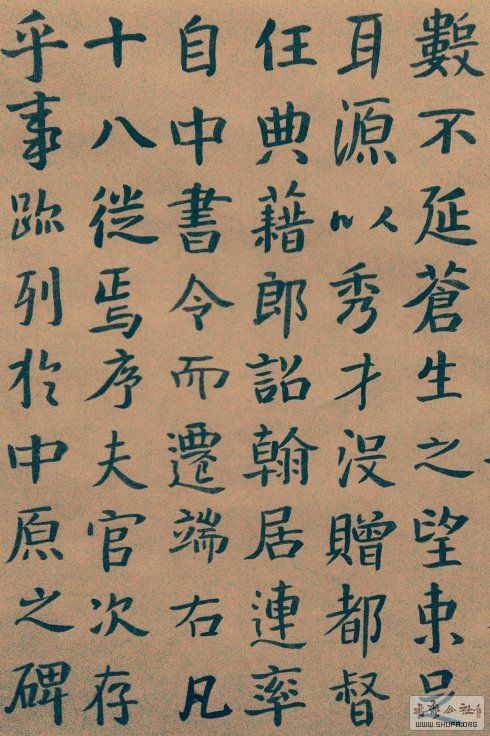 數不延蒼生之望東
耳源以秀才没贈都督
任典藉郎詔翰居連率
自中書令而遷端右凡
十八徙焉序夫官次存
乎事跡列於中原之碑
公社
WWW.SHUFA.ORG